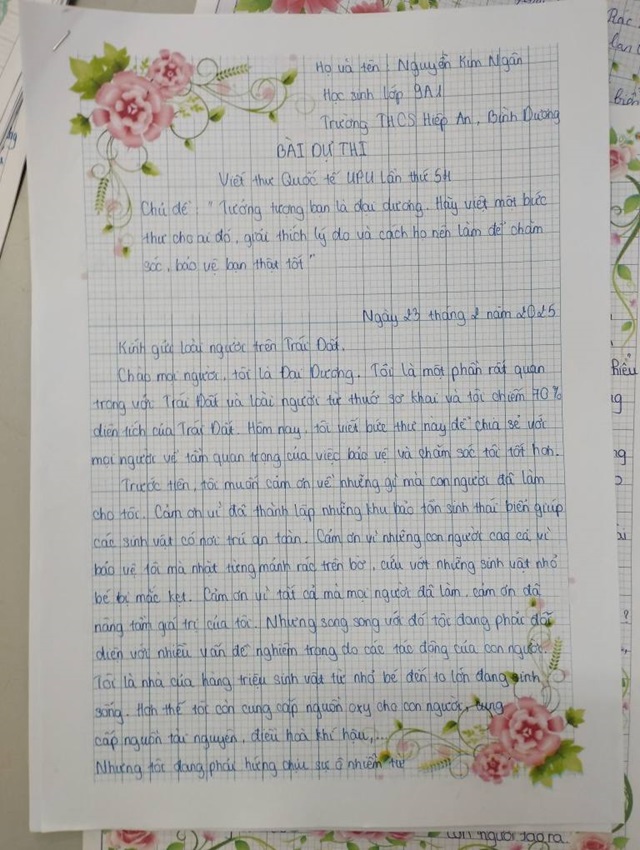 Họ và tên: Nguyễn Kim Ngân
Học sinh lớp 9A1
Trường THCS Hiệp An, Bình Dương
BÀI DỰ THI
Viết thư Quốc tế UPU lần thứ 54
Chủ đề: "Tưởng tượng bạn là đại dương. Hãy viết một bức
thư cho ai đó, giải thích lý do và cách họ nên làm để chăm
sóc, bảo vệ bạn thật tốt"
Ngày 23 tháng 2 năm 2025
Kính gửi loài người trên Trái Đất.
Chào mọi người, tôi là Đại Dương. Tôi là một phần rất quan
trọng với Trái Đất và loài người từ thuở sơ khai và tôi chiếm 70%
diện tích của Trái Đất. Hôm nay, tôi viết bức thư này để chia sẻ với
mọi người về tầm quan trọng của việc bảo vệ và chăm sóc tôi tốt hơn.
Trước tiên, tôi muốn cảm ơn về những gì mà con người đã làm
cho tôi. Cảm ơn vì đã thành lập những khu bảo tồn sinh thái biển giúp
các sinh vật có nơi trú an toàn. Cảm ơn vì những con người cao cả vì
bảo vệ tôi mà nhặt từng mảnh rác trên bờ, cứu vớt những sinh vật nhỏ
bé bị mắc kẹt. Cảm ơn vì tất cả mà mọi người đã làm, cảm ơn đã
nâng tầm giá trị của tôi. Nhưng song song với đó tôi đang phải đối
diện với nhiều vấn đề nghiêm trọng do các tác động của con người.
Tôi là nhà của hàng triệu sinh vật từ nhỏ bé đến to lớn đang sinh
sống. Hơn thế tôi còn cung cấp nguồn oxy cho con người, cung
cấp nguồn tài nguyên, điều hoà khí hậu,...
Nhưng tôi đang phải hứng chịu sự ô nhiễm từ
Rác
con người tạo ra.